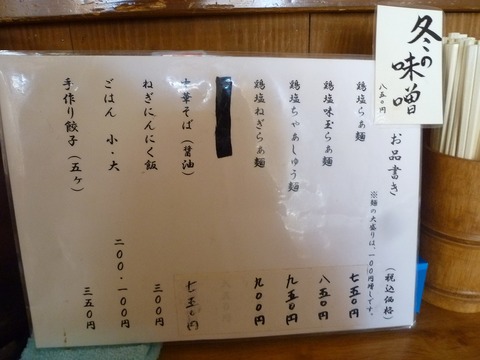 冬の味噌
八五〇円
お品書き
(税込価格)
※麺の大盛りは、一〇〇円増しです。
鶏塩らぁ麺 七五〇円
鶏塩味玉らぁ麺 八五〇円
鶏塩ちゃあしゅう麺 九五〇円
鶏塩ねぎらぁ麺 九〇〇円
中華そば(醤油) 七五〇円
ねぎにんにく飯 三〇〇円
ごはん 小・大 二〇〇・一〇〇円
手作り餃子(五ケ) 三五〇円